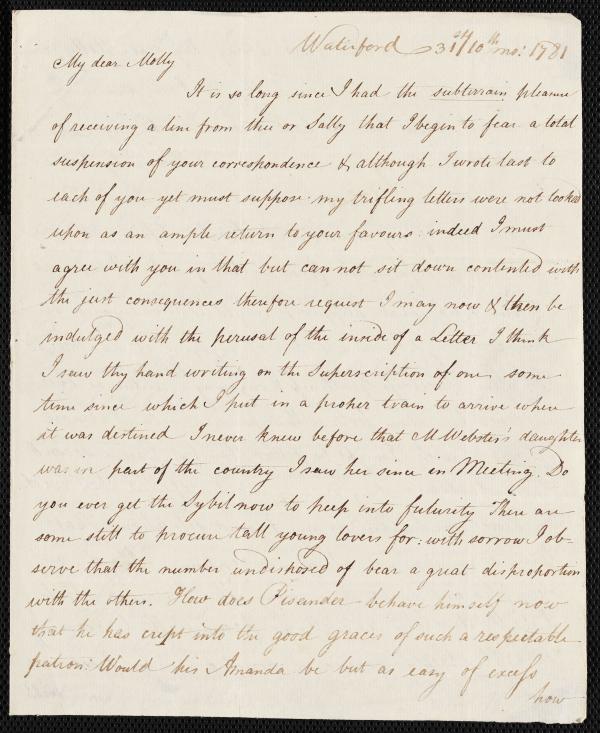 Waterford 31st/10th mo: 1781
My dear Molly
It is so long since I had the subterrain pleasure
of receiving a line from thee or Sally that I begin to fear a total
suspension of your correspondence & although I wrote last to
each of you yet must suppose my trifling letters were not looked
upon as an ample return to your favours: indeed I must
agree with you in that but cannot sit down contented with
the just consequences therefore request I may now & then be
indulged with the perusal of the inside of a Letter I think
I saw thy hand writing on the Superscription of one some
time since which I put in a proper train to arrive where
it was destined I never knew before that M Webster's daughter
was in part of the country I saw her since in Meeting. Do
you ever get the Sybil now to peep into futurity There are
some still to procure tall young lovers for: with sorrow I ob-
serve that the number undisposed of bear a great disproportion
with the others. How does Pisander behave himself now
that he has crept into the good graces of such a respectable
patron: Would his Amanda be but as easy of excess
how